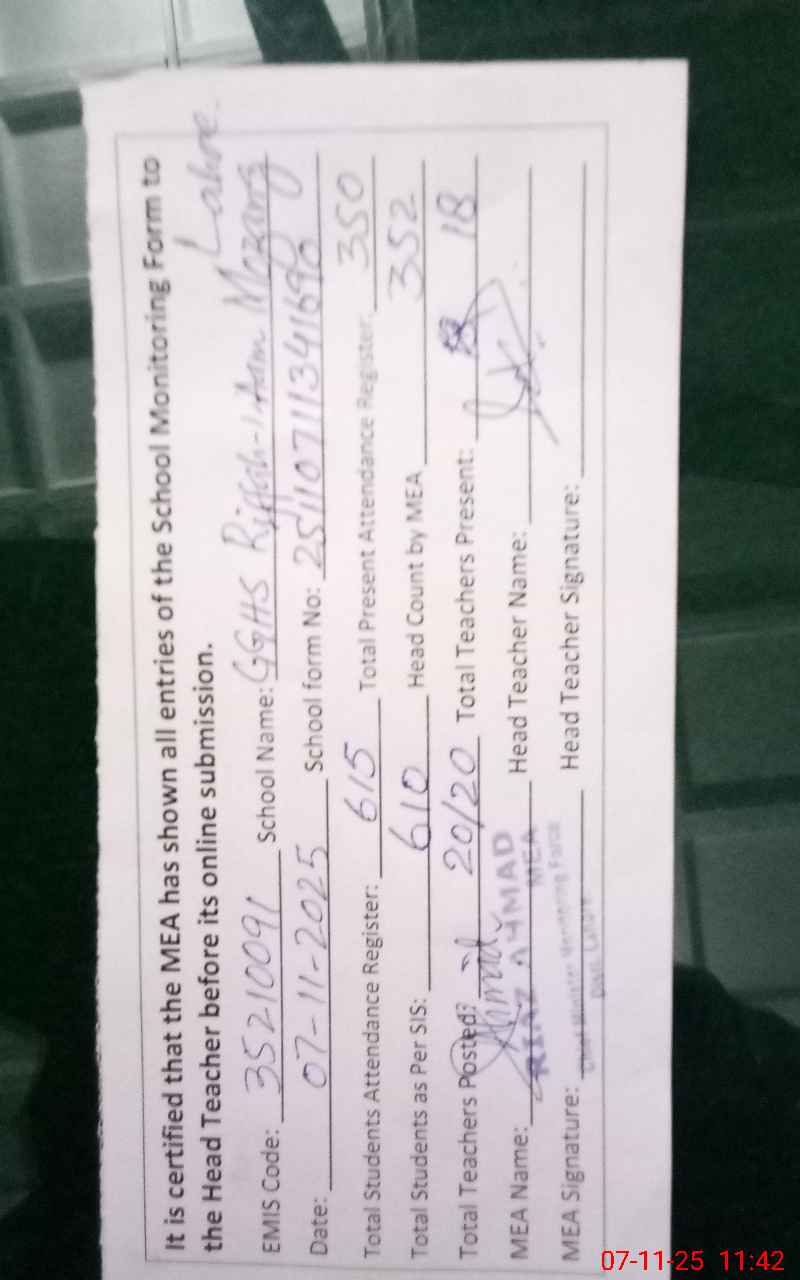 It is certified that the MEA has shown all entries of the School Monitoring Form to
the Head Teacher before its online submission.
EMIS Code: 35210091 School Name: GGHS Mozang Lahore.
Date: 07-11-2025 School form No:
Total Students Attendance Register: 615 Total Present Attendance Register: 350
Total Students as Per SIS: 610 Head Count by MEA 352
Total Teachers Posted: 20/20 Total Teachers Present: 18
MEA Name: RIAZ AHMAD Head Teacher Name:
MEA
MEA Signature: Chief Minister Monitoring Force Head Teacher Signature:
Distt. Lahore
07-11-25 11:42